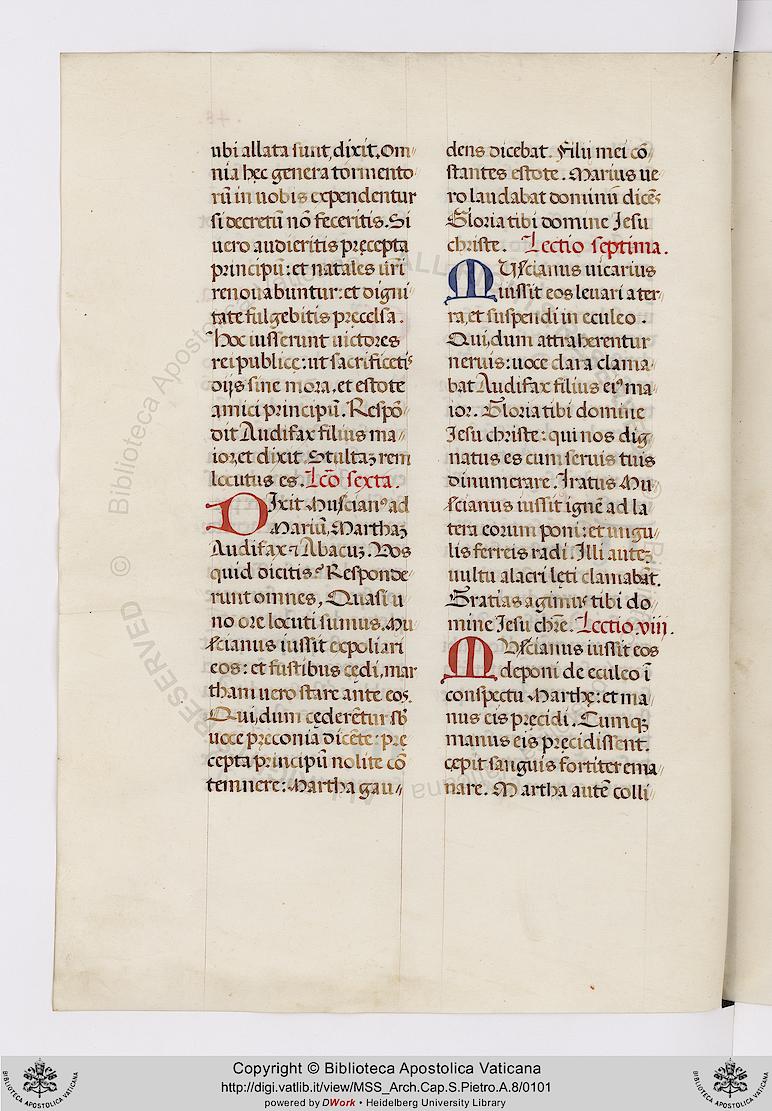 ubi allata sunt, dixit, Om⸗
nia hęc genera tormento
rū in uobis expendentur
si decretū nō feceritis. Si
uero audieritis pręcepta
principū: et natales ūri
renouabuntur: et digni
tate fulgebitis pręcelsa.
Hoc iusserunt uictores
reipublicę: ut sacrificetis
diis sine mora, et estote
amici principū. Respō⸗
dit Audifax filius ma⸗
ior, et dixit. Stultaꝫ rem
locutus es. Lcō sexta.
Dixit Muscianꝰ ad
Mariū, Marthaꝫ
Audifax ⁊ Abacuꝫ. Vos
quid dicitis? Responde
runt omnes, Quasi u
no ore locuti sumus. Mu
scianus iussit expoliari
eos: et fustibus cędi, mar
tham uero stare ante eos.
Qui, dum cęderētur sƀ
uoce pręconia dicēte: prę
cepta principū nolite cō
temnere: Martha gau⸗
dens dicebat. Filii mei cō
stantes estote. Marius ue
ro laudabat dominū dicēs
Gloria tibi domine Jesu
christe. Lectio septima.
MUscianus uicarius
iussit eos leuari a ter
ra, et suspendi in eculeo.
Qui, dum attraherentur
neruis: uoce clara clama
bat Audifax filius eiꝰ ma
ior. Gloria tibi domine
Jesu christe: qui nos dig
natus es cum seruis tuis
dinumerare. Iratus Mu
scianus iussit ignē ad la
tera eorum poni: et ungu
lis ferreis radi. Illi auteꝫ
uultu alacri leti clamabāt.
Gratias agimus tibi do
mine Jesu chr̄e. Lectio .viii.
MUscianus iussit eos
deponi de eculeo ī
conspectu Marthę: et ma
nus eis pręcidi. Cumqꝫ
manus eis pręcidissent.
cępit sanguis fortiter ema
nare. Martha autē colli
© Biblioteca Apostolica Vaticana
Copyright © Biblioteca Apostolica Vaticana
http://digi.vatlib.it/view/MSS_Arch.Cap.S.Pietro.A.8/0101
powered by DWork • Heidelberg University Library